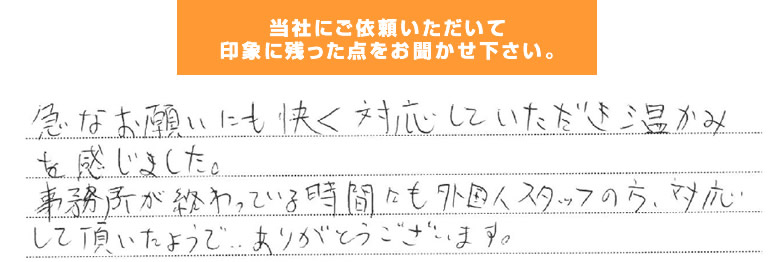 当社にご依頼いただいて
印象に残った点をお聞かせ下さい。
急なお願いにも快く対応していただき温かみ
を感じました。
事務所が終わっている時間にも外国人スタッフの方、対応
して頂いたようで‥ありがとうございます。